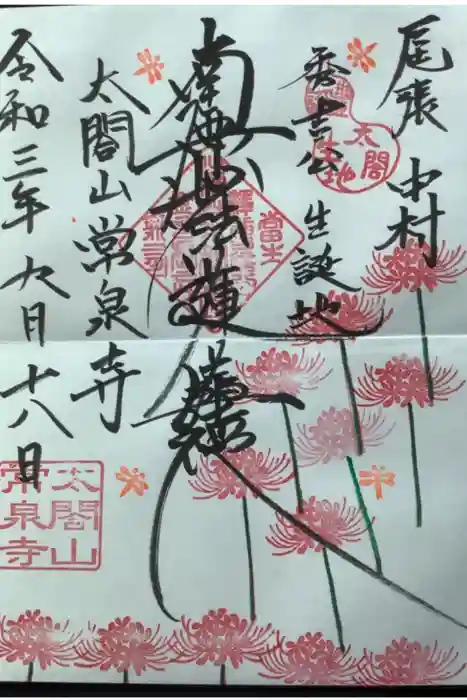 尾張 中村
秀吉公 生誕地
太閤
生地
南無妙法蓮華経
太閤山常泉寺
令和三年九月十八日
太閤山
常泉寺